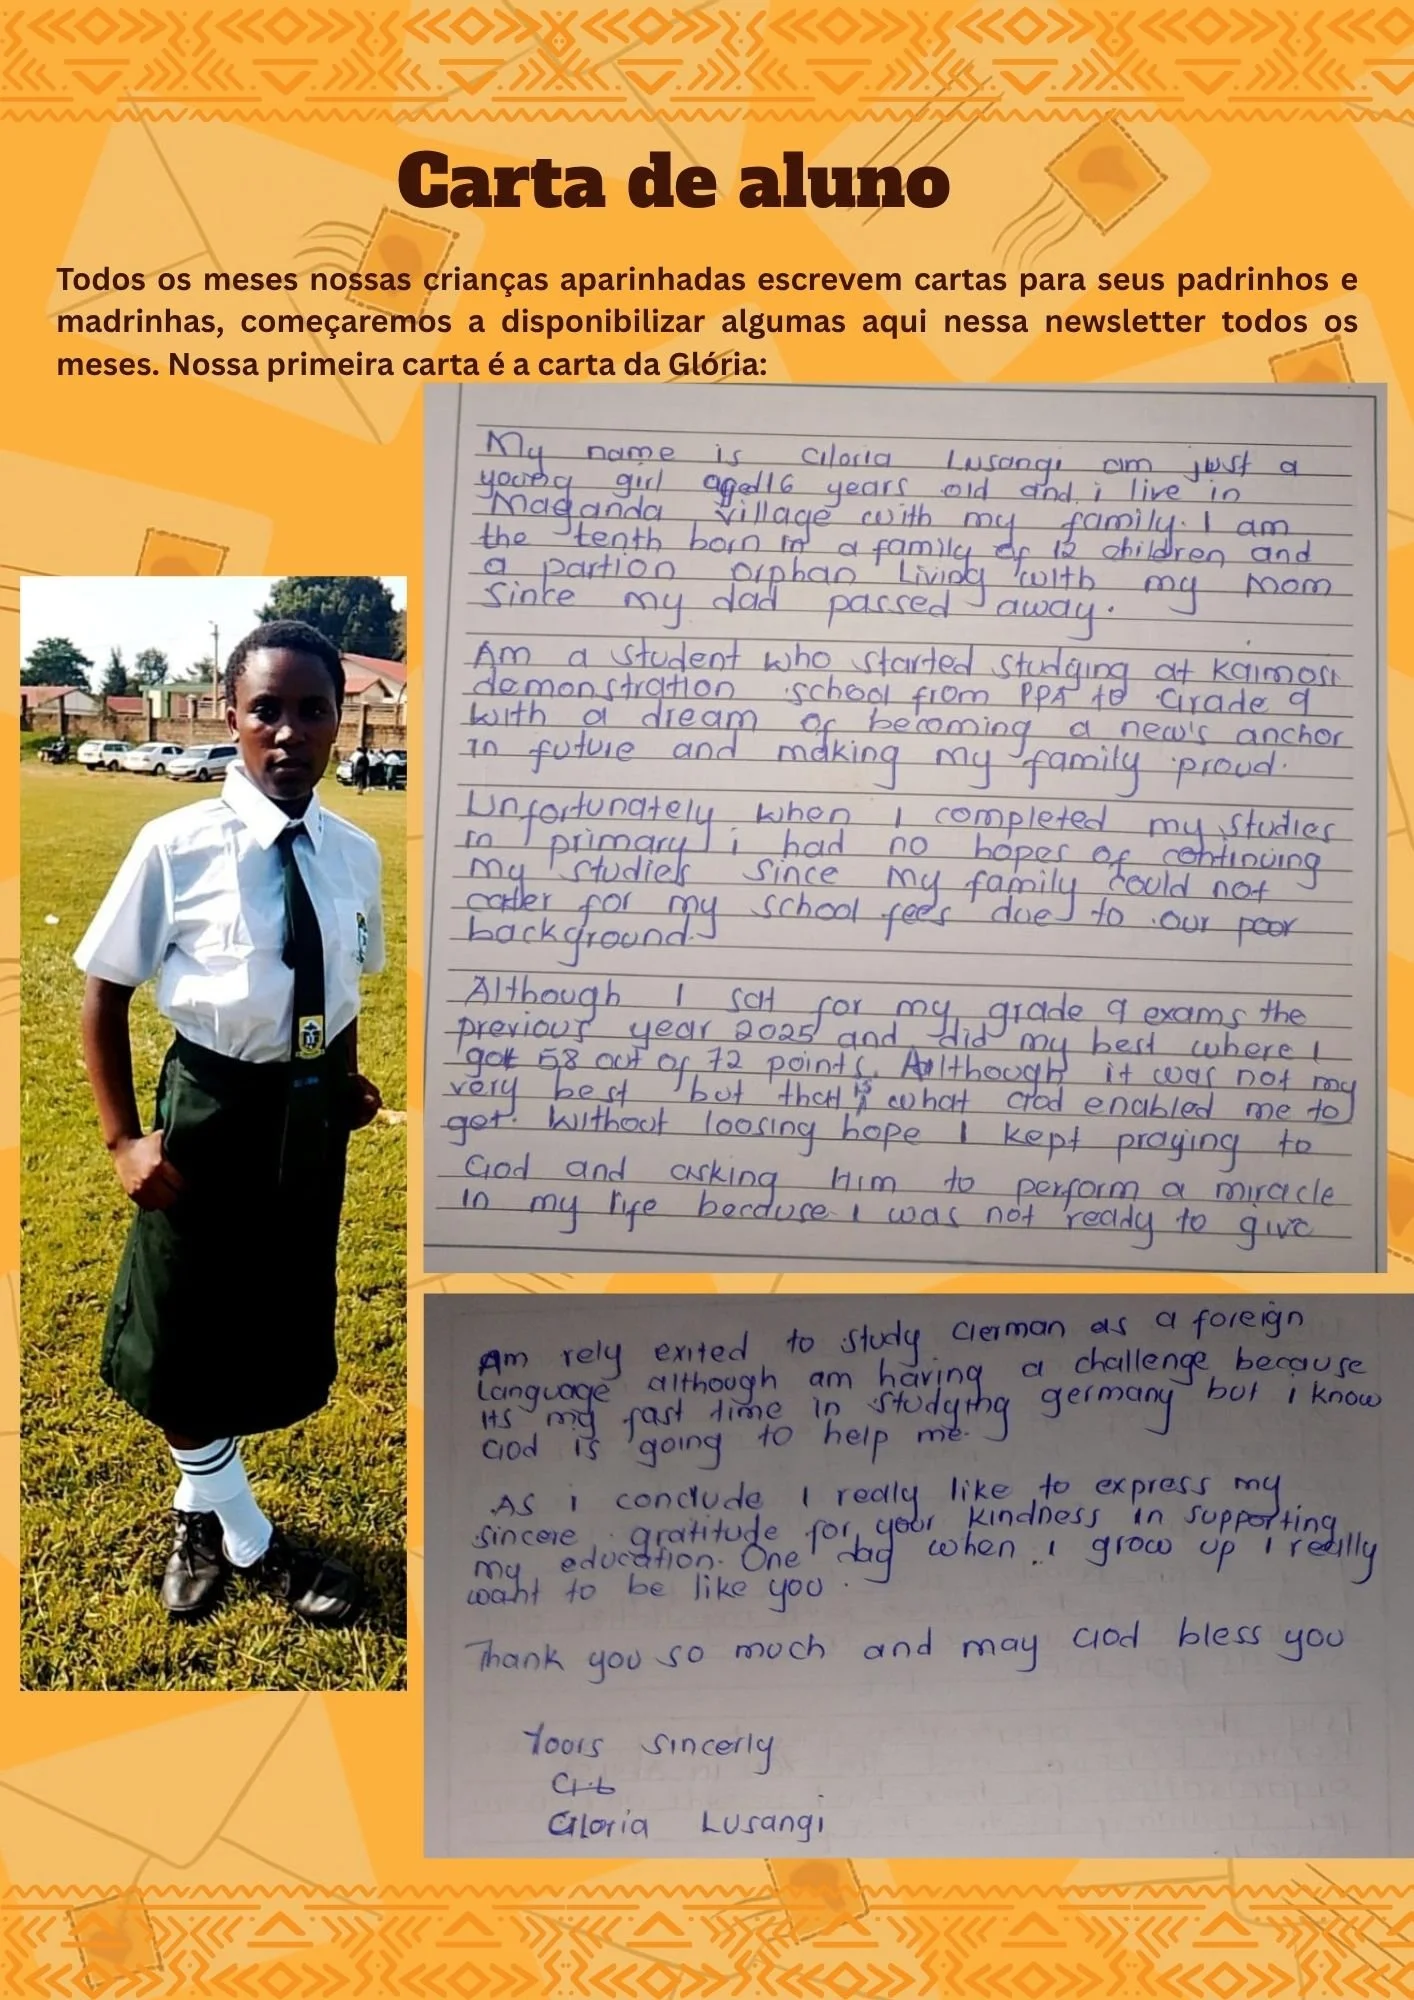 Carta de aluno
Todos os meses nossas crianças aparinhadas escrevem cartas para seus padrinhos e
madrinhas, começaremos a disponibilizar algumas aqui nessa newsletter todos os
meses. Nossa primeira carta é a carta da Glória:
My name is Gloria Lusangi am just a
young girl aged 16 years old and i live in
Maganda village with my family. I am
the tenth born in a family of 12 children and
a partion orphan Living with my Mom
Since my dad passed away.
Am a student who started studying at Kaimosi
demonstration school from PPA to Grade 9
with a dream of becoming a new's anchor
in future and making my family proud.
Unfortunately when I completed my studies
in primary i had no hopes of continuing
my studies since my family could not
cater for my school fees due to our poor
background.
Although I sat for my grade 9 exams the
previous year 2025 and did my best where I
got 58 out of 72 points. Allthough it was not my
very best but that is what God enabled me to
get. Without loosing hope I kept praying to
God and asking Him to perform a miracle
in my life because I was not ready to give
Am rely exited to study German as a foreign
Language although am having a challenge because
its my fast time in studying germany but i know
God is going to help me.
As i conclude I really like to express my
sincere gratitude for your kindness in supporting
my education. One day when i grow up I really
want to be like you.
Thank you so much and may God bless you
Yoors Sincerly
Gloria Lusangi